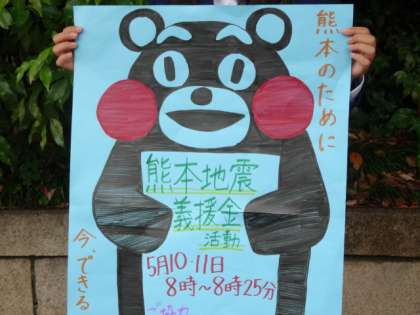 熊本のために
熊本地震
義援金
活動
5月10・11日
8時～8時25分
ご協力
今、できる